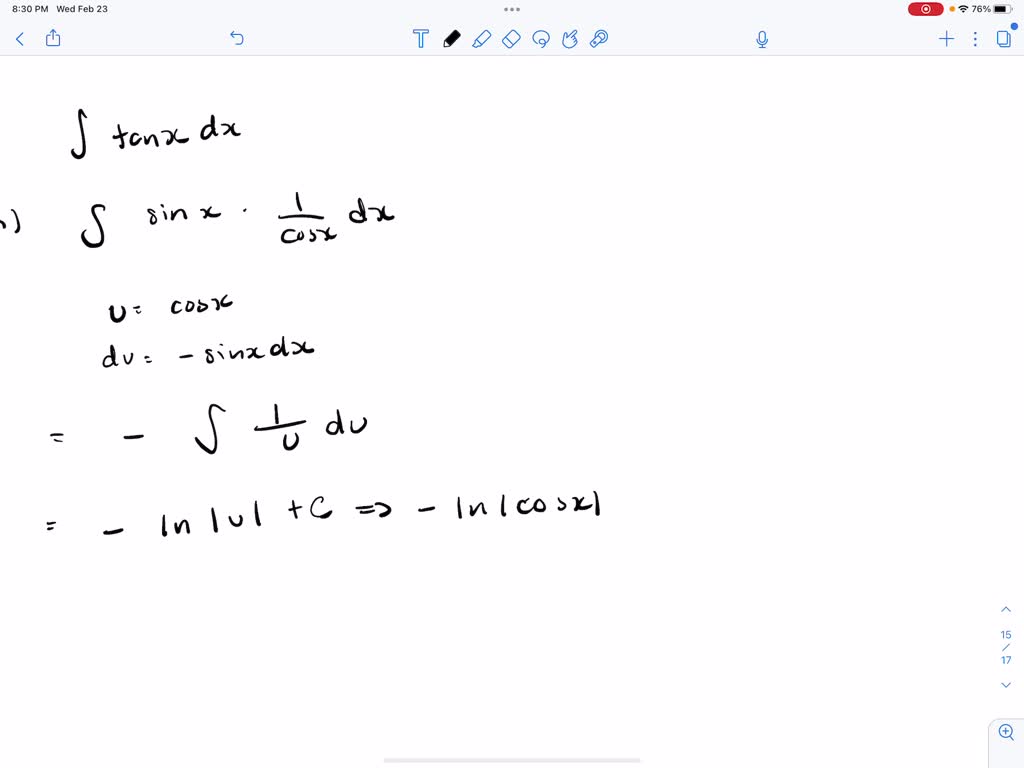 8:30 PM Wed Feb 23
76%
T
∫ tanx dx
∫ sin x · 1/cosx dx
u = cosx
du = - sinx dx
= - ∫ 1/u du
= - ln |u| + C => - ln |cosx|
15
/
17